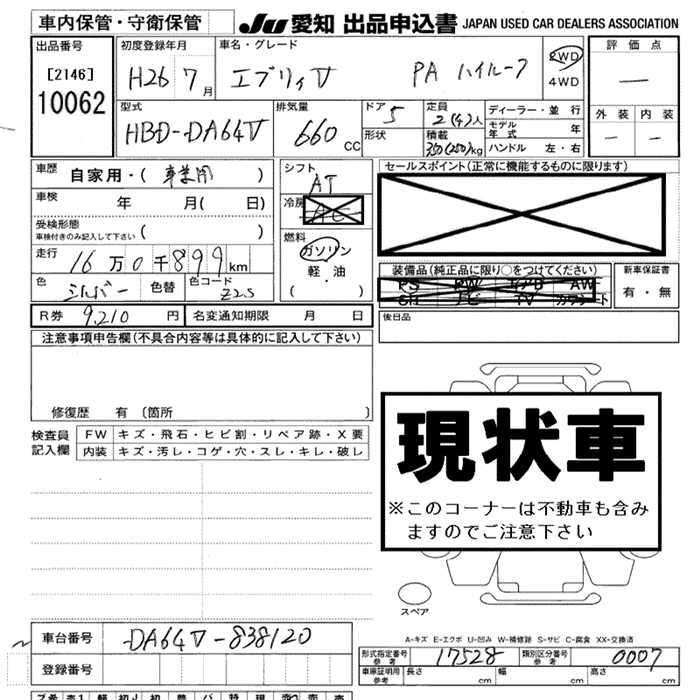 車内保管・守衛保管
JU 愛知 出品申込書 JAPAN USED CAR DEALERS ASSOCIATION
出品番号
[2146]
10062
初度登録年月
H26 7月
車名・グレード
エブリィV PA ハイルーフ
2WD
4WD
評価点
—
外装 内装
— —
型式
HBD-DA64V
排気量
660 CC
ドア 5
形状
定員 2(4)人
積載 350(250)kg
ディーラー・並行
モデル年式 年
ハンドル 左・右
車歴 自家用・( 事業用 )
車検 年 月( 日)
受検形態
車検付きのみ記入して下さい ( )
走行 16万0千899km
色 シルバー 色替 色コード Z2S
シフト AT
冷房 AC
燃料
ガソリン
軽・油
( )
セールスポイント(正常に機能するものに限ります)
装備品(純正品に限り○をつけてください)
PS PW エアB AW
SR ナビ TV カワシート
新車保証書
有・無
R券 9,210 円 名変通知期限 月 日
後日品
注意事項申告欄(不具合内容等は具体的に記入して下さい)
修復歴 有 〔箇所 〕
検査員記入欄
FW キズ・飛石・ヒビ割・リペア跡・X要
内装 キズ・汚レ・コゲ・穴・スレ・キレ・破レ
現状車
※このコーナーは不動車も含み
ますのでご注意下さい
スペア
A-キズ E-エクボ U-凹み W-補修跡 S-サビ C-腐食 XX-交換済
車台番号 DA64V-838120
登録番号
形式指定番号 参考 17528 類別区分番号 参考 0007
車庫証明用 参考 長さ cm 幅 cm 高さ cm